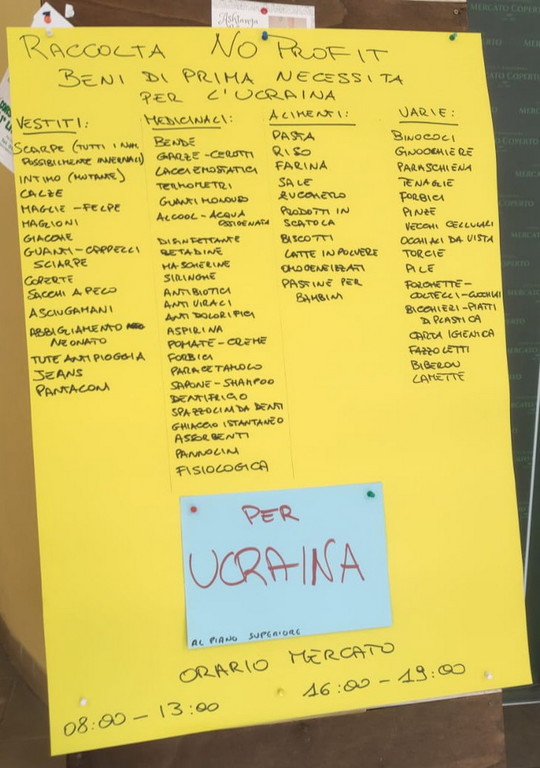 Ashtanga
MERCATO COPERTO
RACCOLTA NO PROFIT
BENI DI PRIMA NECESSITA
PER L'UCRAINA
VESTITI:
SCARPE (TUTTI I NUM.
POSSIBILMENTE INVERNALI)
INTIMO (MUTANTE)
CALZE
MAGLIE - FELPE
MAGLIONI
GIACCHE
GUANTI - CAPPELLI
SCIARPE
COPERTE
SACCHI A PELO
ASCIUGAMANI
ABBIGLIAMENTO
NEONATO
TUTE ANTIPIOGGIA
JEANS
PANTALONI
MEDICINALI:
BENDE
GARZE - CEROTTI
LACCI EMOSTATICI
TERMOMETRI
GUANTI MONOUSO
ALCOOL - ACQUA
OSSIGENATA
DISINFETTANTE
BETADINE
MASCHERINE
SIRINGHE
ANTIBIOTICI
ANTIVIRALI
ANTIDOLORIFICI
ASPIRINA
POMATE - CREME
FORBICI
PARACETAMOLO
SAPONE - SHAMPOO
DENTIFRICIO
SPAZZOLINI DA DENTI
GHIACCIO ISTANTANEO
ASSORBENTI
PANNOLINI
FISIOLOGICA
ALIMENTI:
PASTA
RISO
FARINA
SALE
ZUCCHERO
PRODOTTI IN
SCATOLA
BISCOTTI
LATTE IN POLVERE
OMOGENEIZZATI
PASTINE PER
BAMBINI
VARIE:
BINOCOLI
GINOCCHIERE
PARASCHIENA
TENAGLIE
FORBICI
PINZE
VECCHI CELLULARI
OCCHIALI DA VISTA
TORCIE
PILE
FORCHETTE -
COLTELLI - CUCCHIAI
BICCHIERI - PIATTI
DI PLASTICA
CARTA IGIENICA
FAZZOLETTI
BIBERON
LAMETTE
PER
UCRAINA
AL PIANO SUPERIORE
ORARIO MERCATO
08:00 - 13:00 16:00 - 19:00